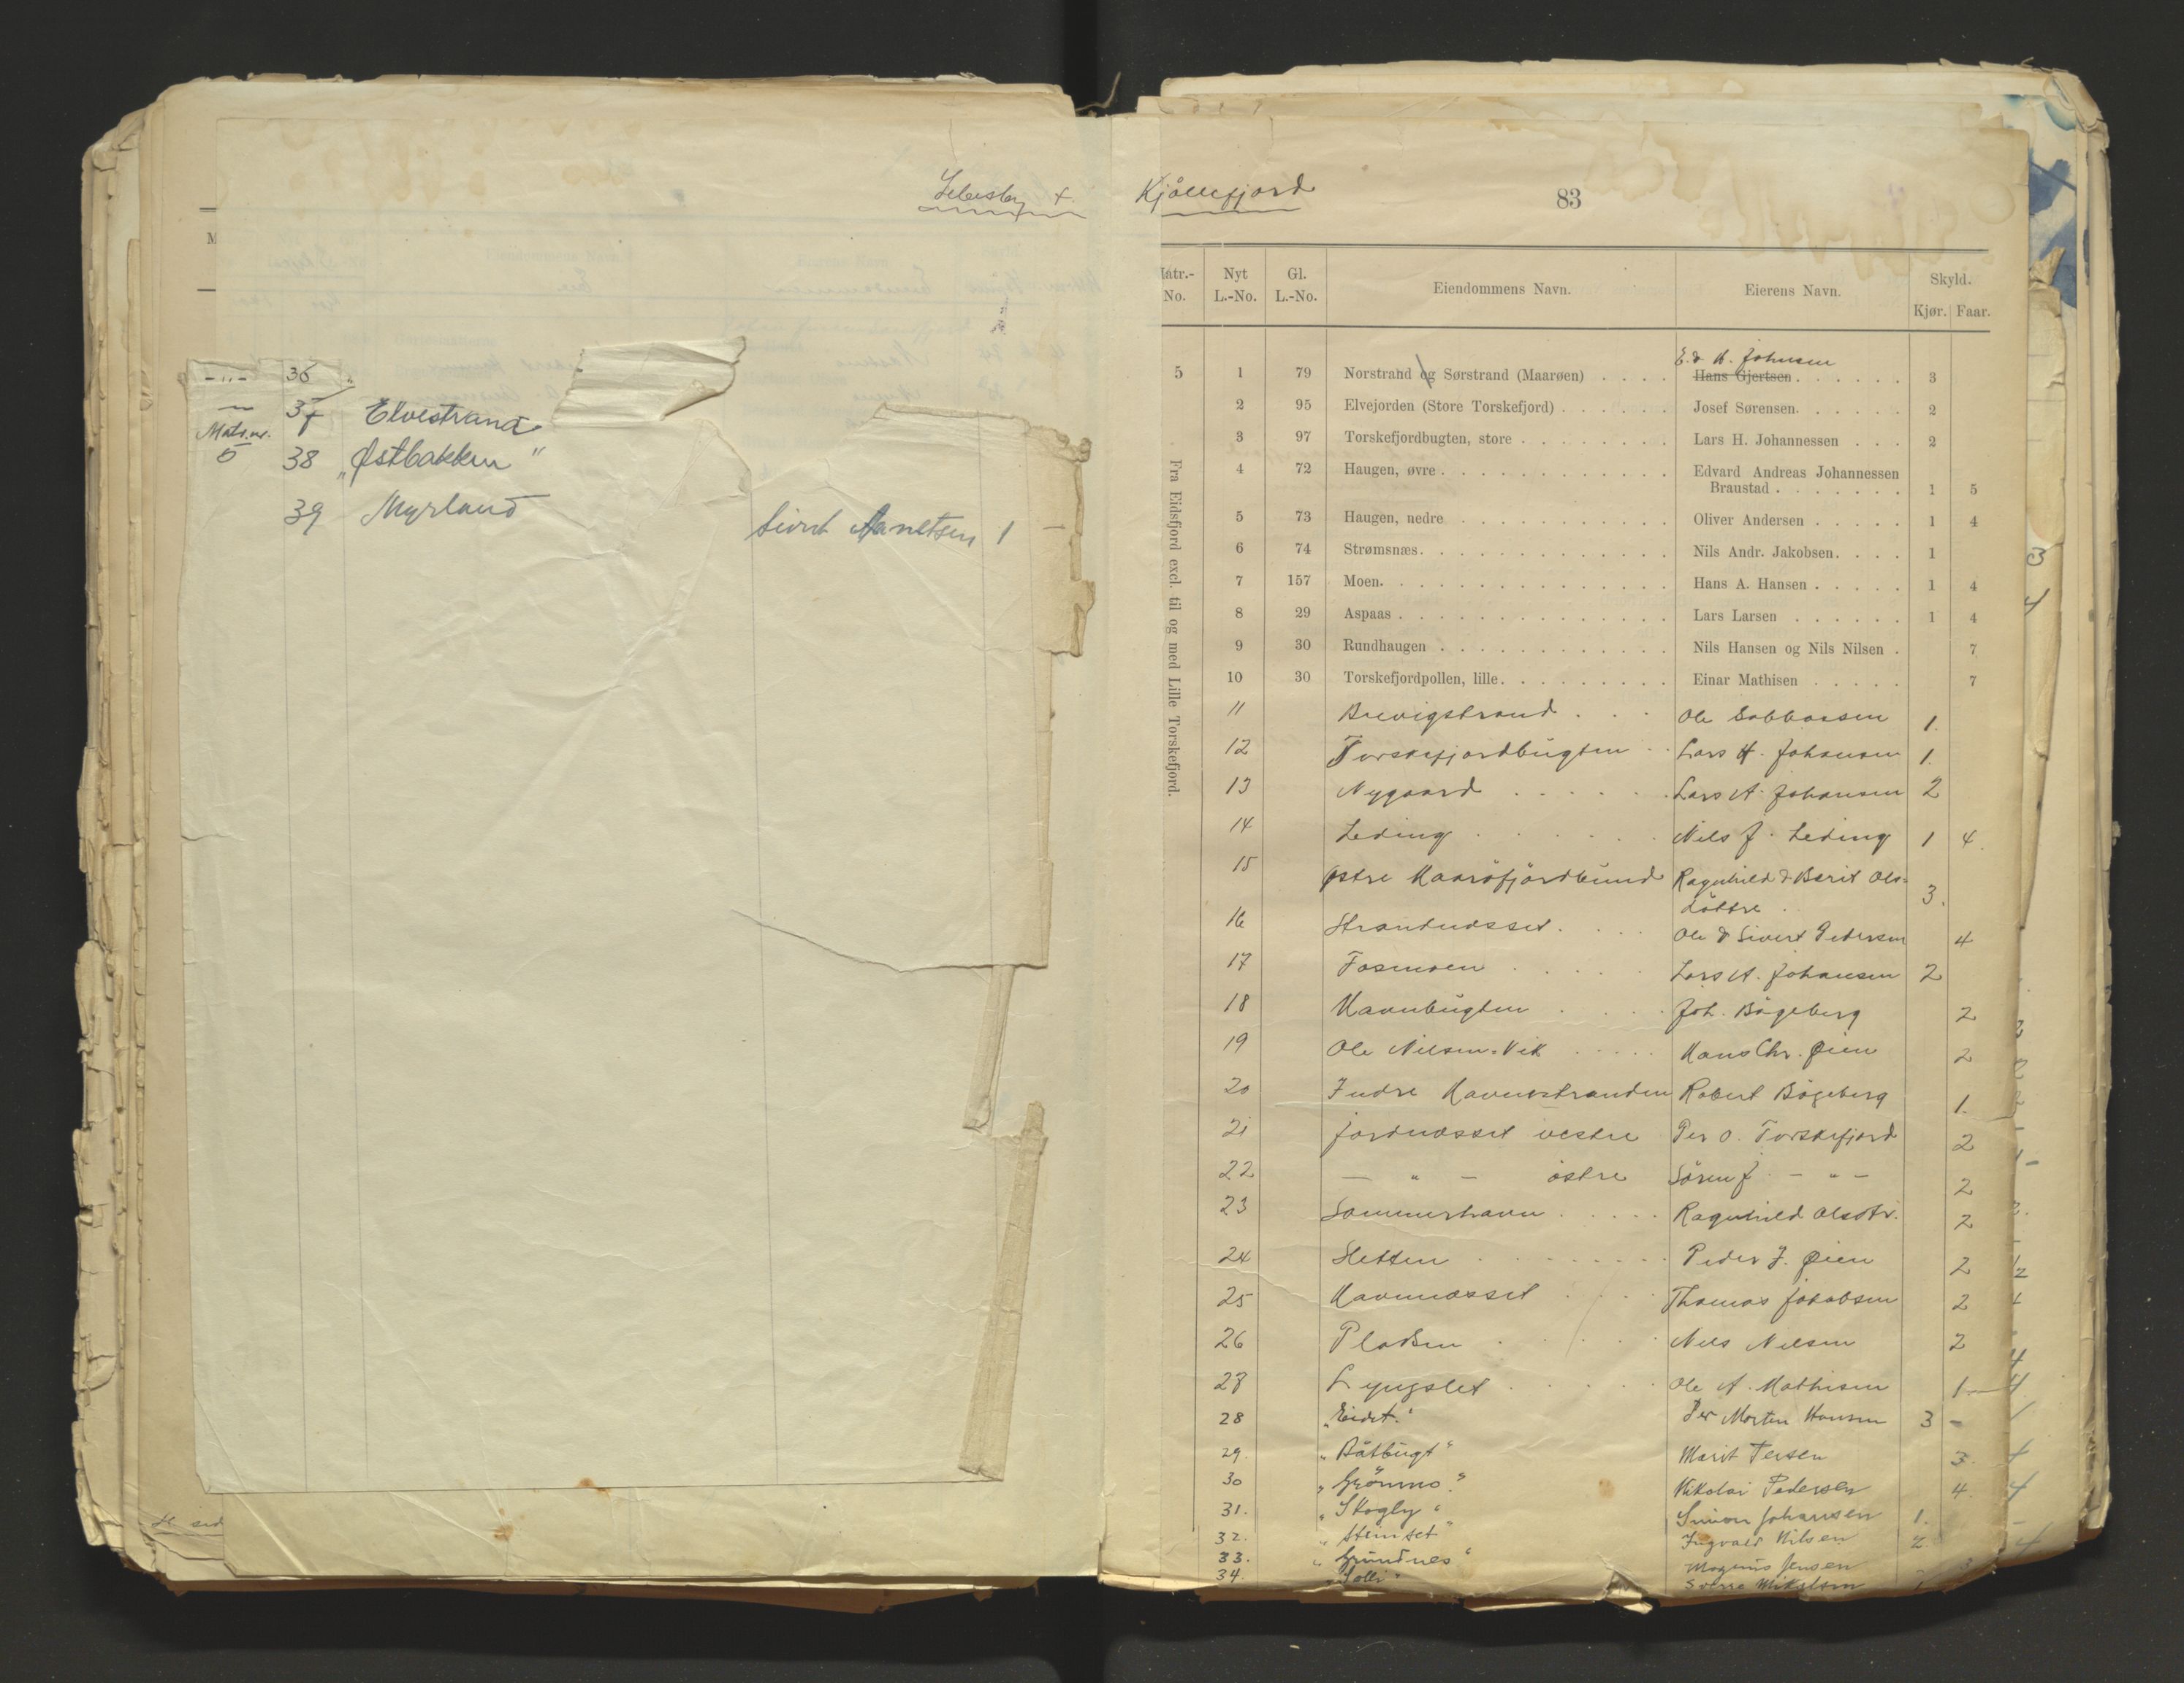 Lebesby +
-"- 36 "
— 37 Elvestrand
Matr.nr.
5 38 „Østbakken"
39 Myrland
Sivert Aanetsen 1
Kjøllefjord
83
Matr.-No. Nyt L.-No. Gl. L.-No. Eiendommens Navn. Eierens Navn. Skyld. Kjør. Faar.
Fra Eidsfjord excl. til og med Lille Torskefjord.
E. & H. Johnsen
5 1 79 Norstrand og Sørstrand (Maarøen) Hans Gjertsen 3
2 95 Elvejorden (Store Torskefjord) Josef Sørensen 2
3 97 Torskefjordbugten, store Lars H. Johannessen 2
4 72 Haugen, øvre Edvard Andreas Johannessen
Braustad 1 5
5 73 Haugen, nedre Oliver Andersen 1 4
6 74 Strømsnæs Nils Andr. Jakobsen 1
7 157 Moen Hans A. Hansen 1 4
8 29 Aspaas Lars Larsen 1 4
9 30 Rundhaugen Nils Hansen og Nils Nilsen 7
10 30 Torskefjordpollen, lille Einar Mathisen 7
11 Brevigstrand Ole 1.
12 Torskefjordbugten Lars H. Johansen 1.
13 Nygaard Lars A. Johansen 2
14 Leding Nils J. Leding 1 4.
15 Østre Maarøfjordbund Ragnhild & Berit Ols=
døttre 3.
16 Strandnæsset Ole & Sivert Pedersen 4
17 Fosmoen Lars A. Johansen 2
18 Havnbugten Joh. Bøgeberg 2
19 Ole Nilsen-Vik Hans Chr. Øien 2
20 Indre Havnstranden Robert Bøgeberg 1.
21 Jordnæsset vestre Per O. Torskefjord 2
22 — " — østre Søren J. - " - 2
23 Sommerhavn Ragnhild Olsdtr. 2
24 Sletten Peder J. Øien 2
25 Havnnæsset Thomas Jakobsen 2
26 Pladsen Nils Nilsen 2
27 Lyngslet Ole A. Mathisen 1
28 „Eidet." Per Morten Hansen 3 -
29. „Båtbugt" Marit Persen 3.
30 „Grønmo." Nikolai Pedersen 4.
31. „Skogly" Simon Johansen 1.
32. „Steinset" Ingvald Nilsen 2.
33. „Grundnes" Magnus Jensen
34. „Solli" Sverre Mikalsen 1